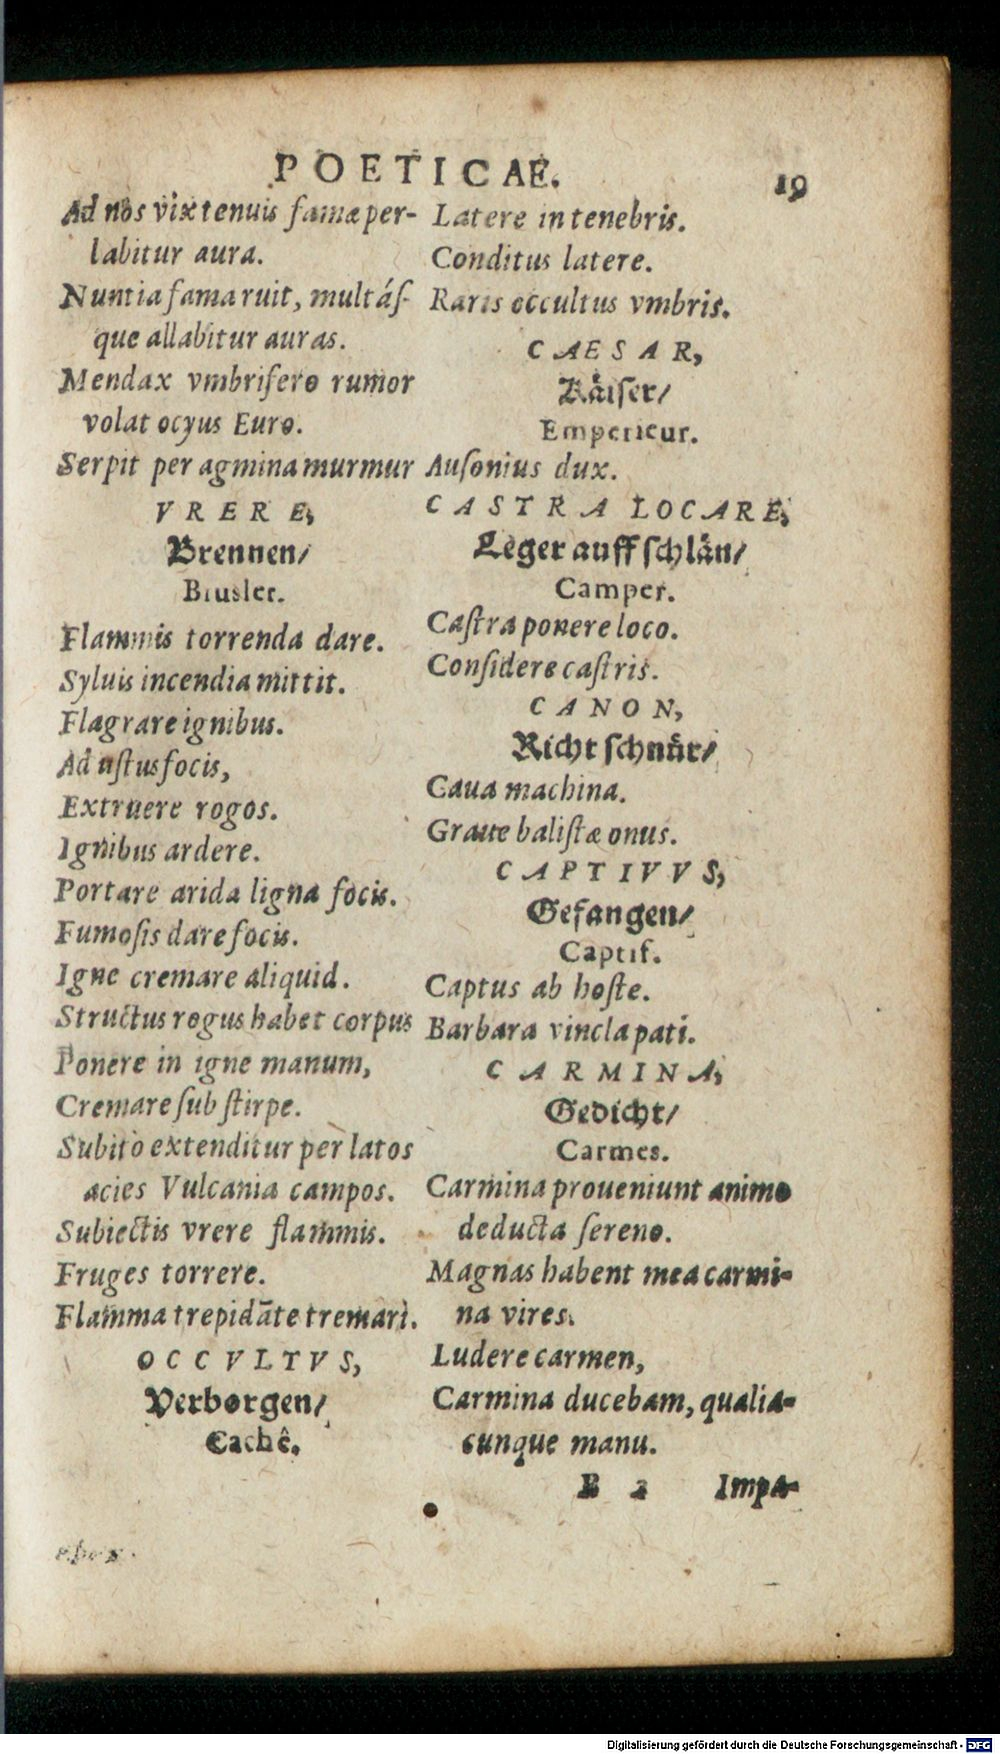 POETICAE.
19
Ad nos vix tenuis famæ per-
labitur aura.
Nuntia fama ruit, multáſ-
que allabitur auras.
Mendax vmbrifero rumor
volat ocyus Euro.
Serpit per agmina murmur
VRERE,
Brennen/
Brusler.
Flammis torrenda dare.
Syluis incendia mittit.
Flagrare ignibus.
Ad uſtus focis,
Extruere rogos.
Ignibus ardere.
Portare arida ligna focis.
Fumoſis dare focis.
Igne cremare aliquid.
Structus rogus habet corpus
Ponere in igne manum,
Cremare ſub ſtirpe.
Subito extenditur per latos
acies Vulcania campos.
Subiectis vrere flammis.
Fruges torrere.
Flamma trepidāte tremari.
OCCVLTVS,
Verborgen/
Cachê.
Latere in tenebris.
Conditus latere.
Raris occultus vmbris.
CAESAR,
Kåiſer/
Emperieur.
Auſonius dux.
CASTRA LOCARE,
Leger auff ſchlån/
Camper.
Caſtra ponere loco.
Conſidere caſtris.
CANON,
Richt ſchnůr/
Caua machina.
Graue baliſtæ onus.
CAPTIVVS,
Gefangen/
Captif.
Captus ab hoſte.
Barbara vincla pati.
CARMINA,
Gedicht/
Carmes.
Carmina proueniunt animo
deducta ſereno.
Magnas habent mea carmi-
na vires.
Ludere carmen,
Carmina ducebam, qualia-
cunque manu.
B 2 Impa-
Digitalisierung gefördert durch die Deutsche Forschungsgemeinschaft - DFG